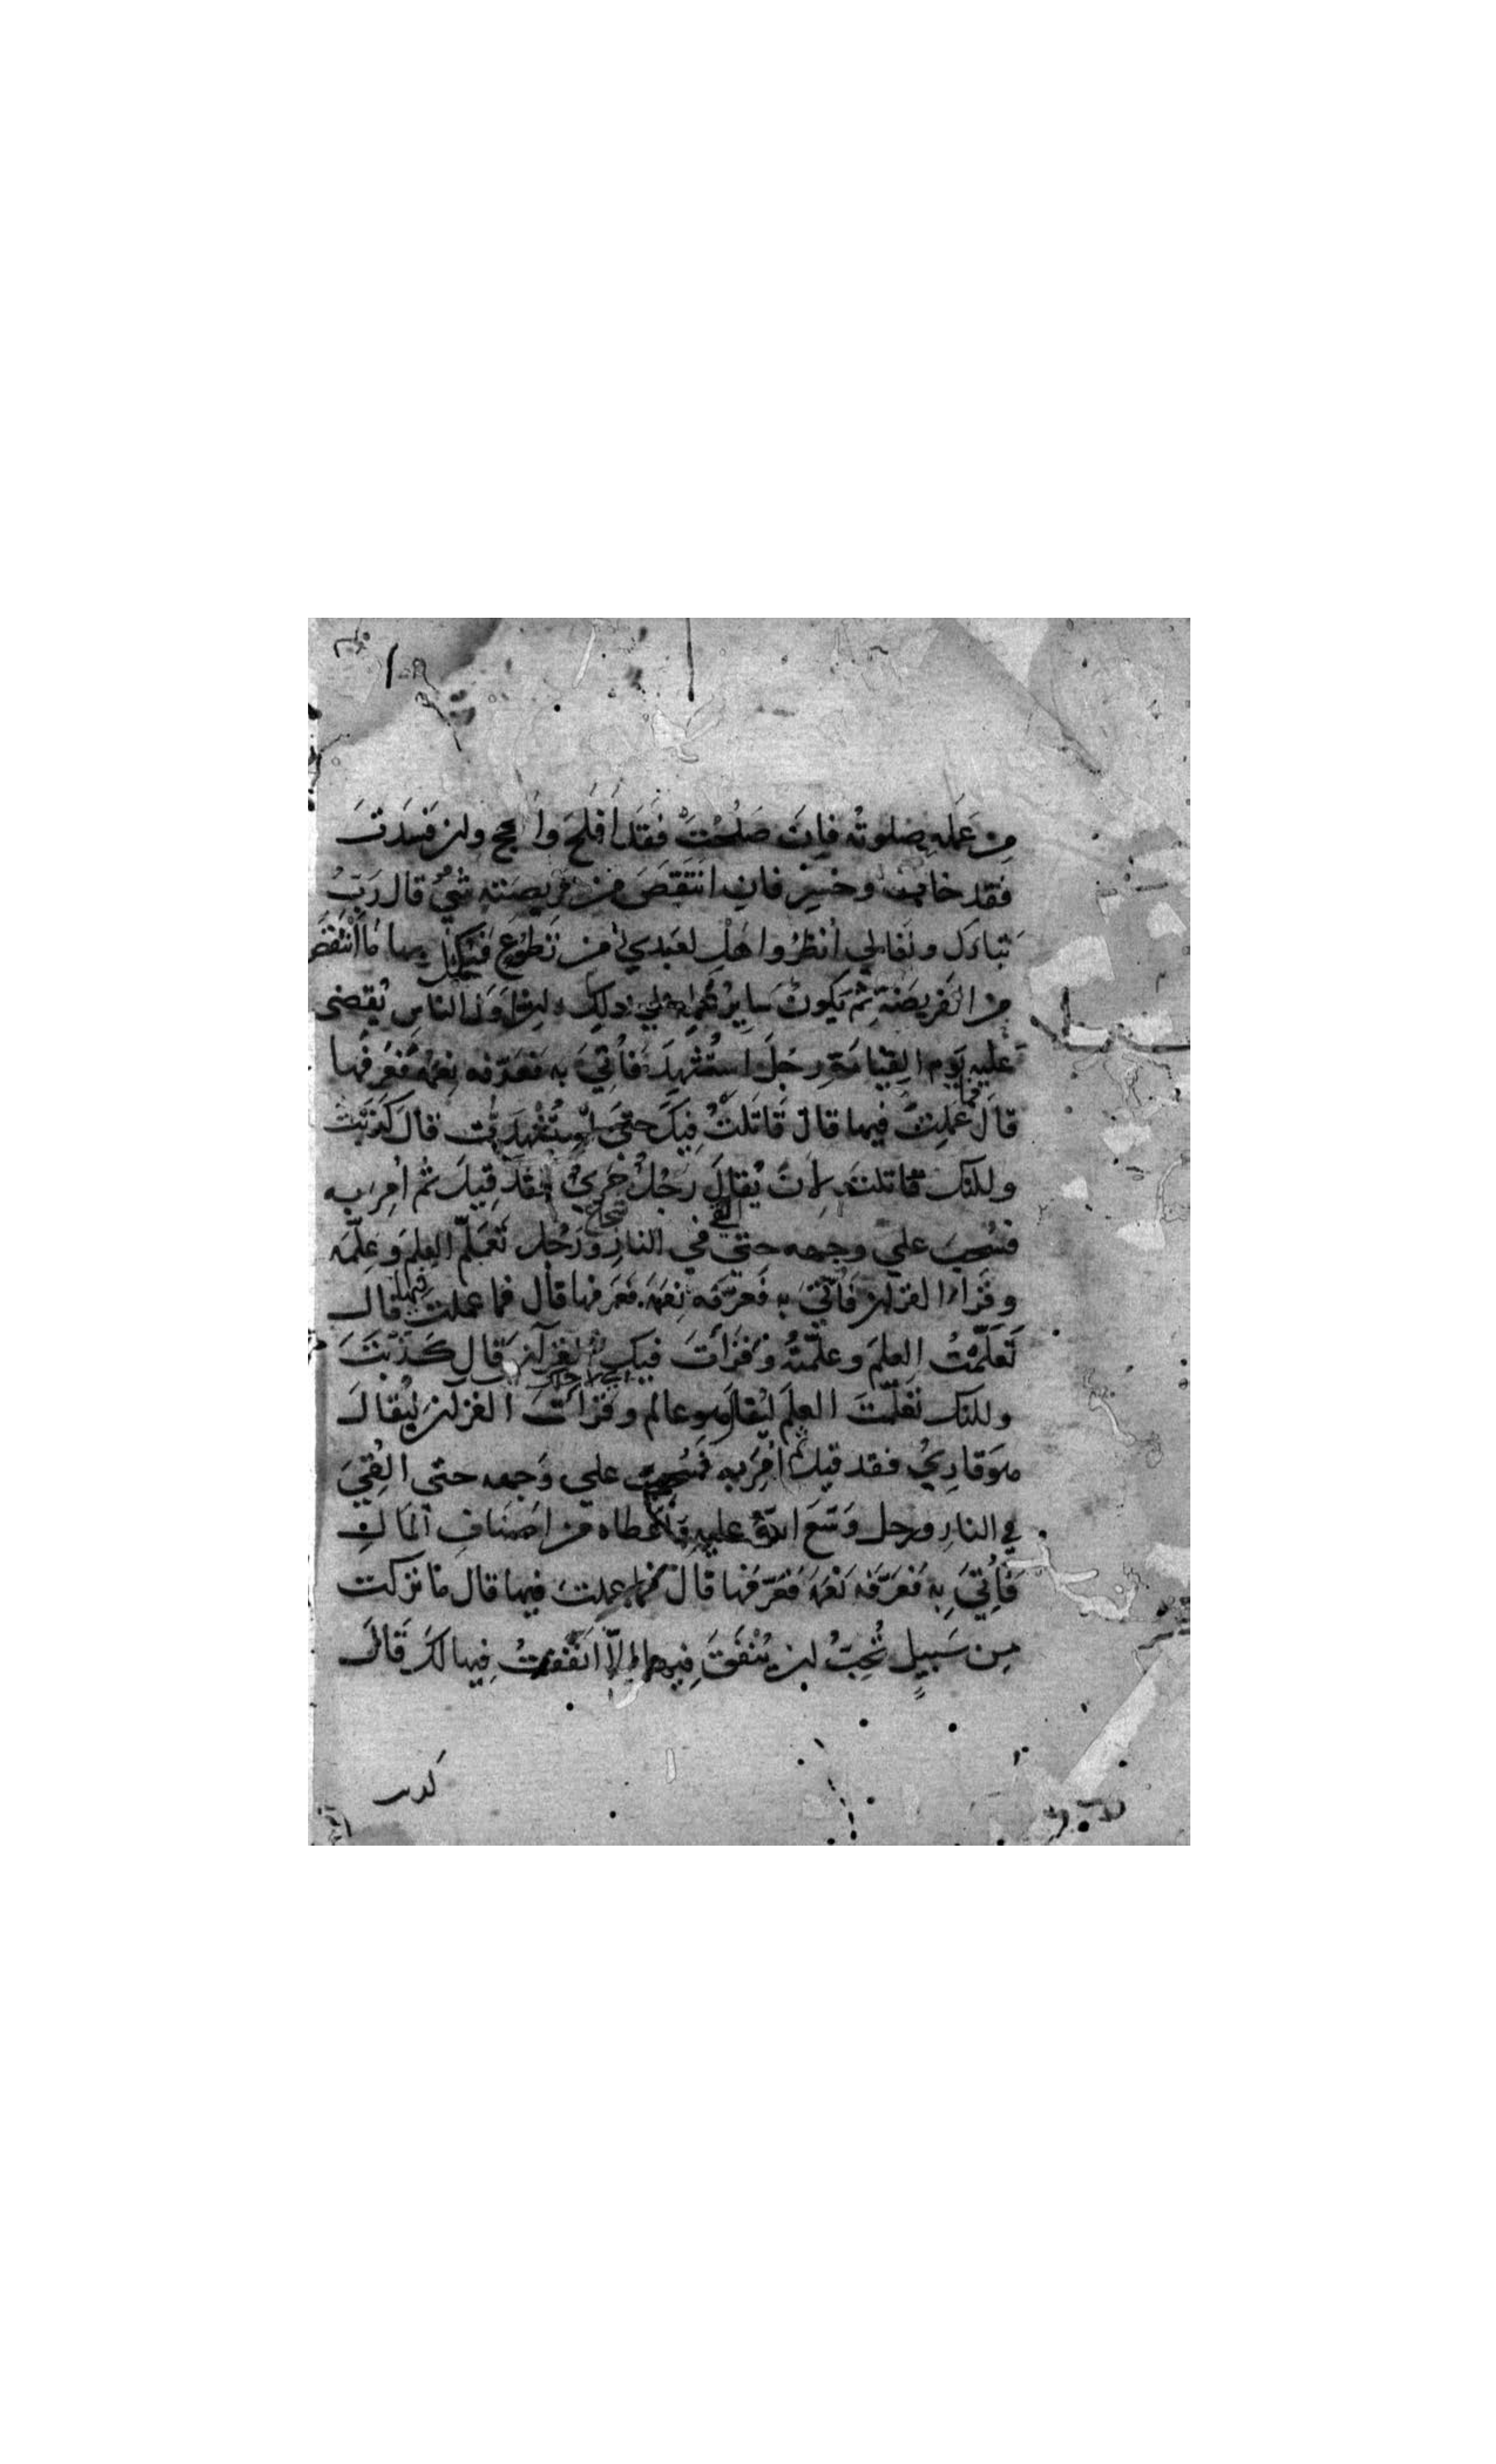 مِن عَمَلِهِ صلوتُه فاِنَ صَلُحَتْ فَقَد اَفلَحَ واَنجح وان فَسَدَتَ
فَقد خابت وخسِرَ فانِ انتَقَصَ من فريضَتهِ شيءٌ قال رَبُّ
تباركَ وتعَالي اُنظرُوا هَل لعَبدي من تَطوّعٍ فيكمل بها مَا انْتَقَصَ
من الفَريضَةِ ثم يَكونُ سَايرُ عَملهِ علي ذلكِ ان اوّلَ الناسِ يُقضى
عليهِ يَوم القِيامَةِ رجُلٌ استُشهِدَ فاُتِيَ به فعَرّفه نِعمَهُ فعَرفَها
قالَ فما عَمِلتَ فيها قال قَاتَلتُ فِيكَ حتىَ استُشهِدتُ قالَ كَذَبْتَ
ولكنك قاتلتَ لاِنَ يُقالَ رَجُلٌ جَرِيٌ فقد قِيلَ ثم اُمِرَ به
شجاع القي
فسُحِبَ علي وجهه حتي في النارِ ورَجُل تَعَلّم العِلمَ وعلّمَه
وقَراءَ القرانَ فاُتيَ به فَعرّفَه نِعمَهَ فعَرفها قال فما عملت فيها قال
تَعَلّمتُ العِلمَ وعلّمتُهُ وقَرَأتَ فيك القرآنَ قال كَذَبتَ
ولكنك تعَلّمتَ العِلمَ ليُقالَ هو عالم وقرَأتَ القران ليُقالَ
هوَ قارِيٌ فقد قيل ثم اُمِرَ به فسُحِبَ علي وَجهه حتى القِيَ
في النارِ ورجل وَسّعَ اللهُ عليهِ واعطاه من اصنَافِ المَالِ
فَاُتِيَ بِه فعَرّفَه نعَمَه فعَرّفَها قالَ فما عملتَ فيها قال ما تركت
مِن سَبيلٍ تُحِبُّ ان يُنْفَقَ فِيها اِلاّ انَفقتُ فِيها لكَ قَالَ
كذبت